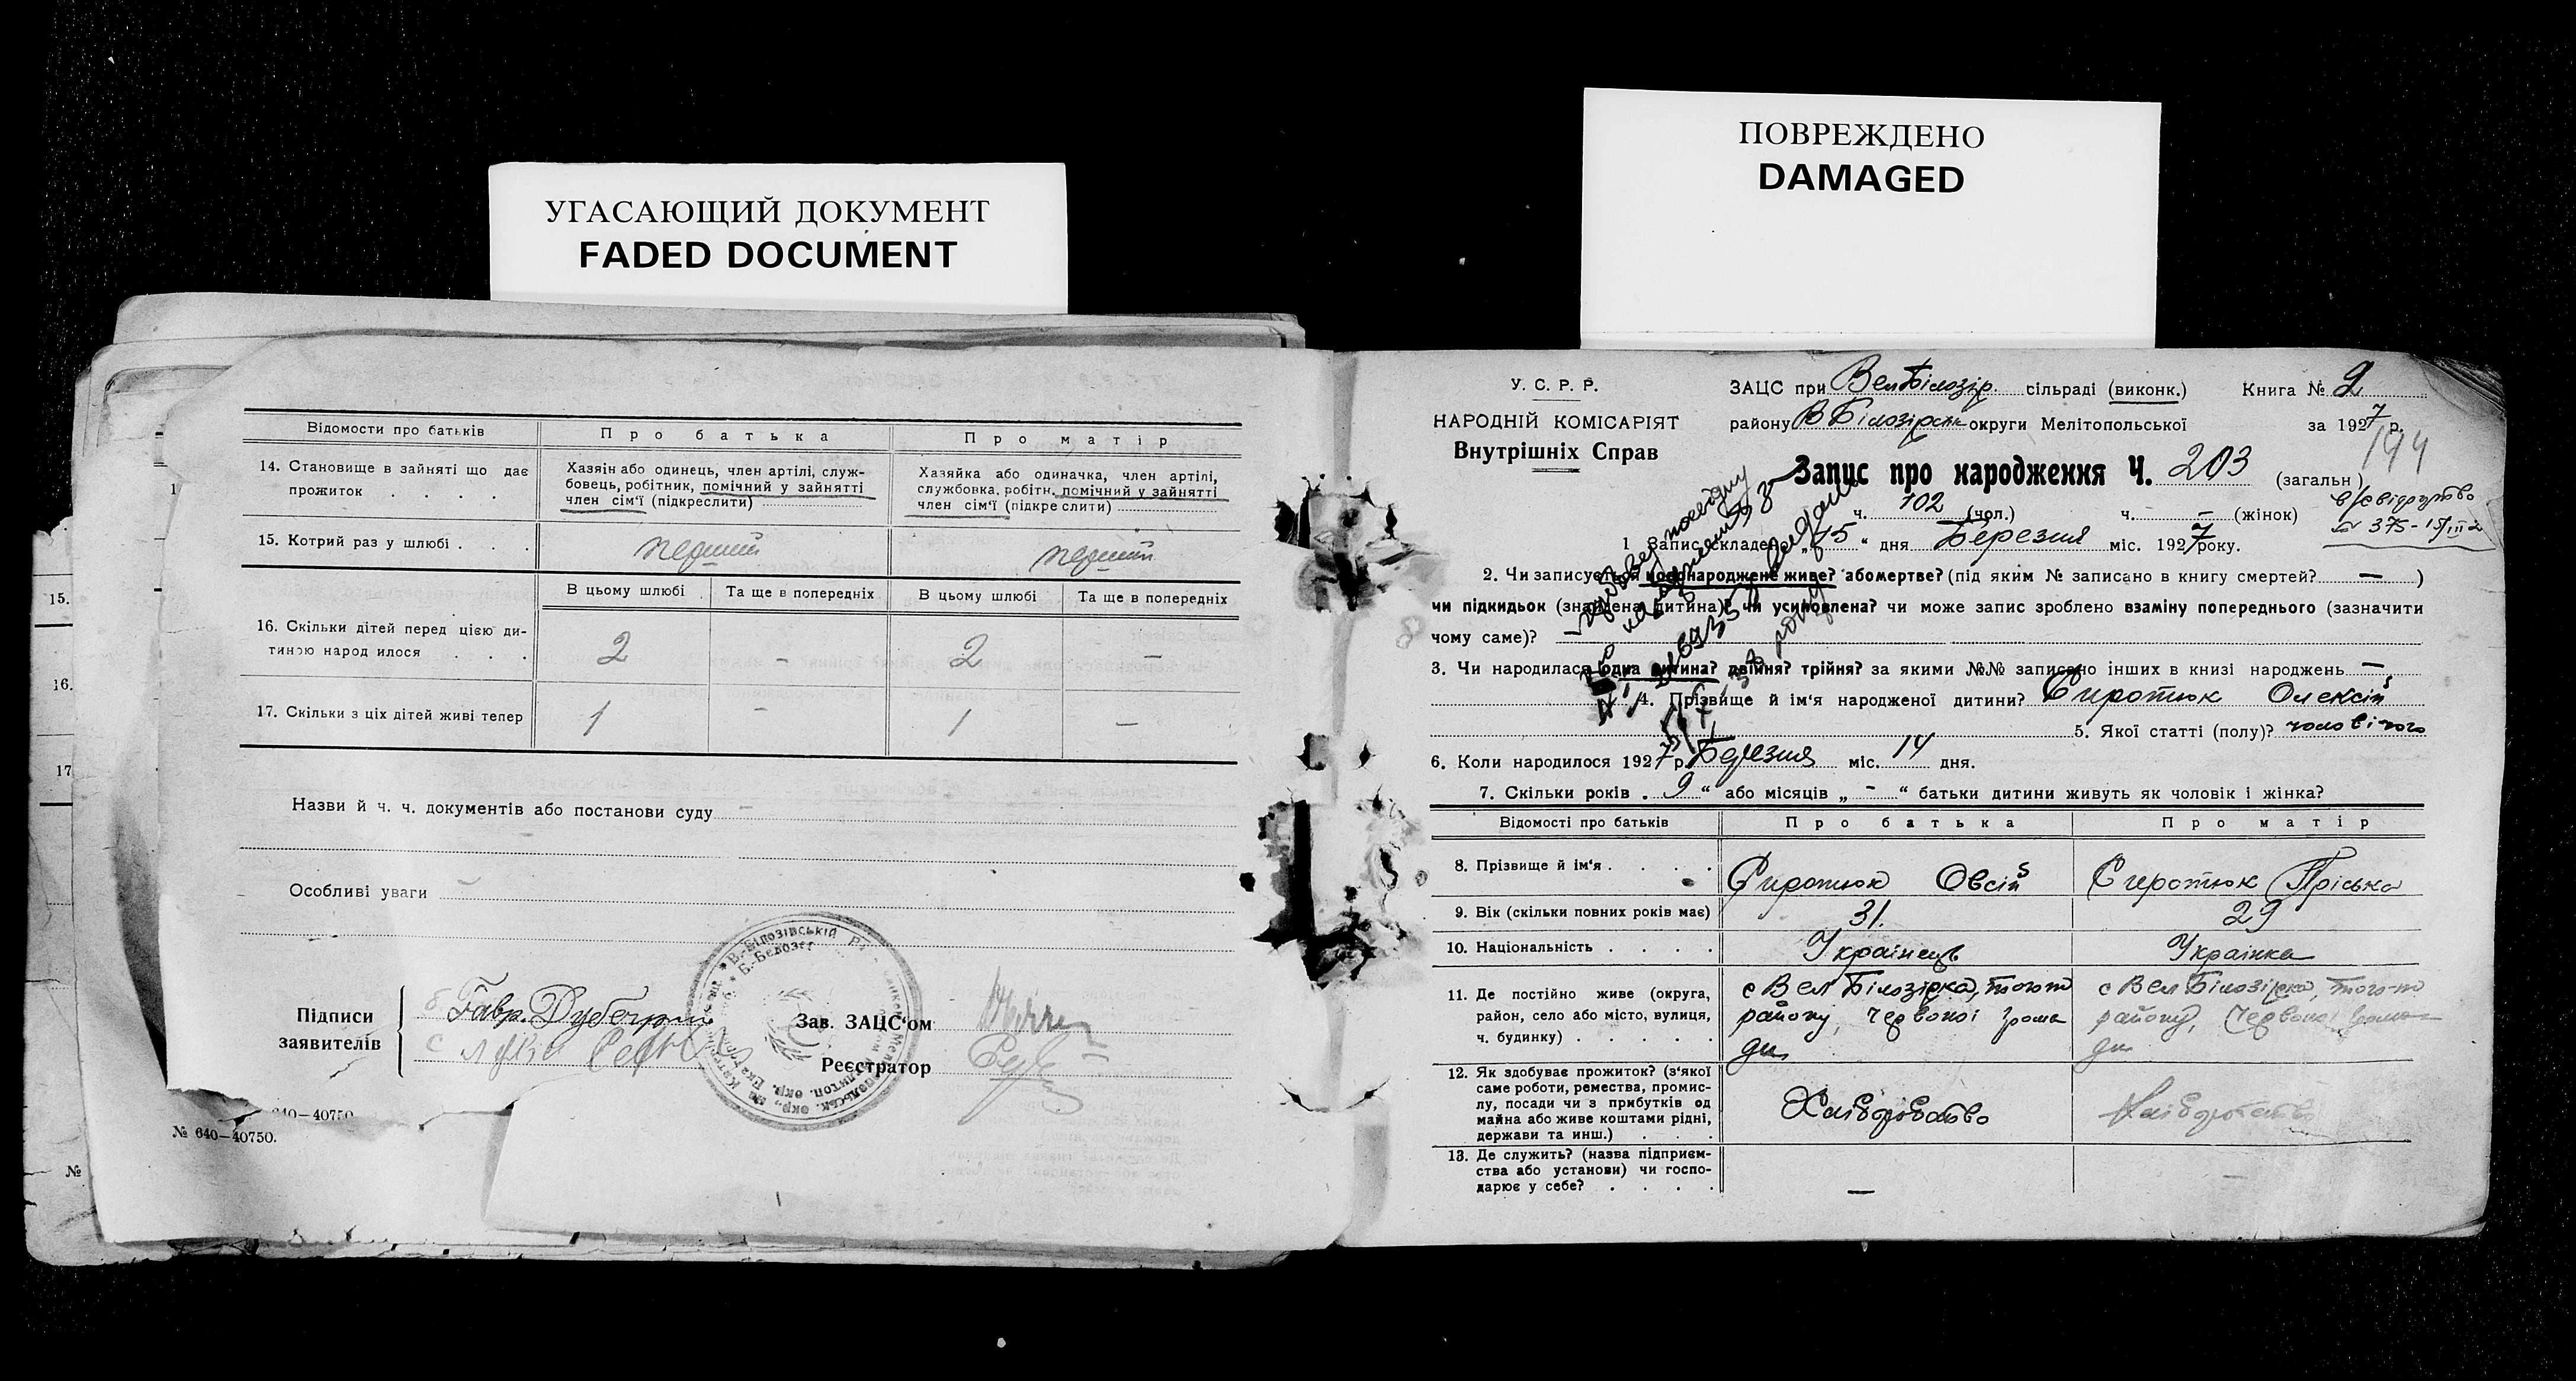 УГАСАЮЩИЙ ДОКУМЕНТ
FADED DOCUMENT
Відомости про батьків
Про батька
Про матір
14. Становище в зайняті що дає
прожиток . . . .
Хазяін або одинець, член артілі, служ-
бовець, робітник, помічний у зайнятті
член сім'ї (підкреслити)
Хазяйка або одиначка, член артілі,
службовка, робітн. помічний у зайнятті
член сім'ї (підкреслити)
15. Котрий раз у шлюбі . . .
перший
перший
В цьому шлюбі
Та ще в попередніх
В цьому шлюбі
Та ще в попередніх
16. Скільки дітей перед цією ди-
тиною народилося . . .
2 - 2 -
17. Скільки з ціх дітей живі тепер
1 - 1 -
Назви й ч. ч. документів або постанови суду -
Особливі уваги -
Підписи
заявителів
Гавр.
Зав. ЗАЦС'ом
Реєстратор
240-40750
№ 640-40750.
15.
16.
17
№
ПОВРЕЖДЕНО
DAMAGED
У. С. Р. Р.
НАРОДНІЙ КОМІСАРІЯТ
Внутрішніх Справ
ЗАЦС при Вел Білозір. сільраді (виконк.) Книга № 2
району В Білозірськ округи Мелітопольської за 1927 р.
194
Запис про народження Ч. 203 (загальн)
ч. 102 (чол.) ч. - (жінок)
№ 375-15/III-2
1 Запис складено „15" дня Березня міс. 1927 року.
2. Чи записується новонароджене живе? або мертве? (під яким № записано в книгу смертей? - )
чи підкидьок (знайдена дитина)? чи усиновлена? чи може запис зроблено взаміну попереднього (зазначити
чому саме)?
3. Чи народилася одна дитина? двійня? трійня? за якими №№ записано інших в книзі народжень -
4. Прізвище й ім'я народженої дитини? Сиротюк Олексій
5. Якої статті (полу)? чоловічого
6. Коли народилося 1927 р. Березня міс. 14 дня.
7. Скільки років „ 9 " або місяців „ - " батьки дитини живуть як чоловік і жінка?
Відомості про батьків
Про батька
Про матір
8. Прізвище й ім'я . . . .
Сиротюк Овсій
Сиротюк Пріська
9. Вік (скільки повних років має)
31.
29
10. Національність . . . .
Українець
Українка
11. Де постійно живе (округа,
район, село або місто, вулиця,
ч. будинку) . . . . .
с Вел Білозірка, того-ж
району, Червоної грома
ди
с Вел Білозірка, того-ж
району, Червоної грома
ди
12. Як здобуває прожиток? (з'якої
саме роботи, ремества, промис-
лу, посади чи з прибутків од
майна або живе коштами рідні,
держави та инш.) . . .
Хліборобство
Хліборобство
13. Де служить? (назва підприєм-
ства або установи) чи госпо-
дарює у себе? . . . .
-
-